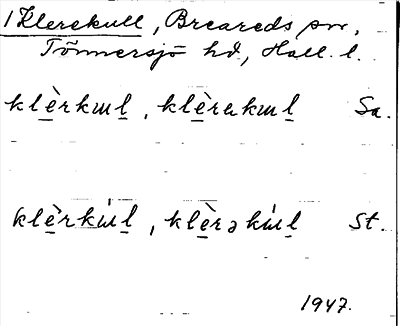 1 Klerekull, Breareds sn,
Tönnersjö hd, Hall. l.
klèrkɯl, klèrakɯl Sa.
klèrkɯ́l, klèrəkɯ́l St.
1947.